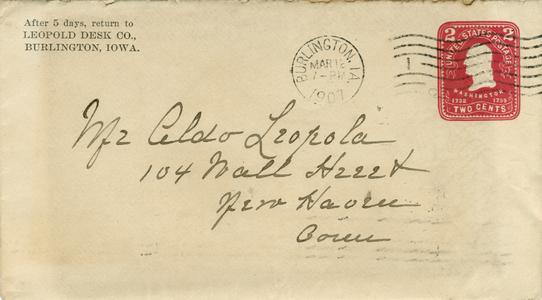 After 5 days, return to
LEOPOLD DESK CO.,
BURLINGTON, IOWA.
BURLINGTON, IA.
MAR 12
7-PM
1907
1
2 2
UNITED STATES POSTAGE
WASHINGTON
1732 1799
TWO CENTS
Mr Aldo Leopold
104 Wall Street
New Haven
Conn